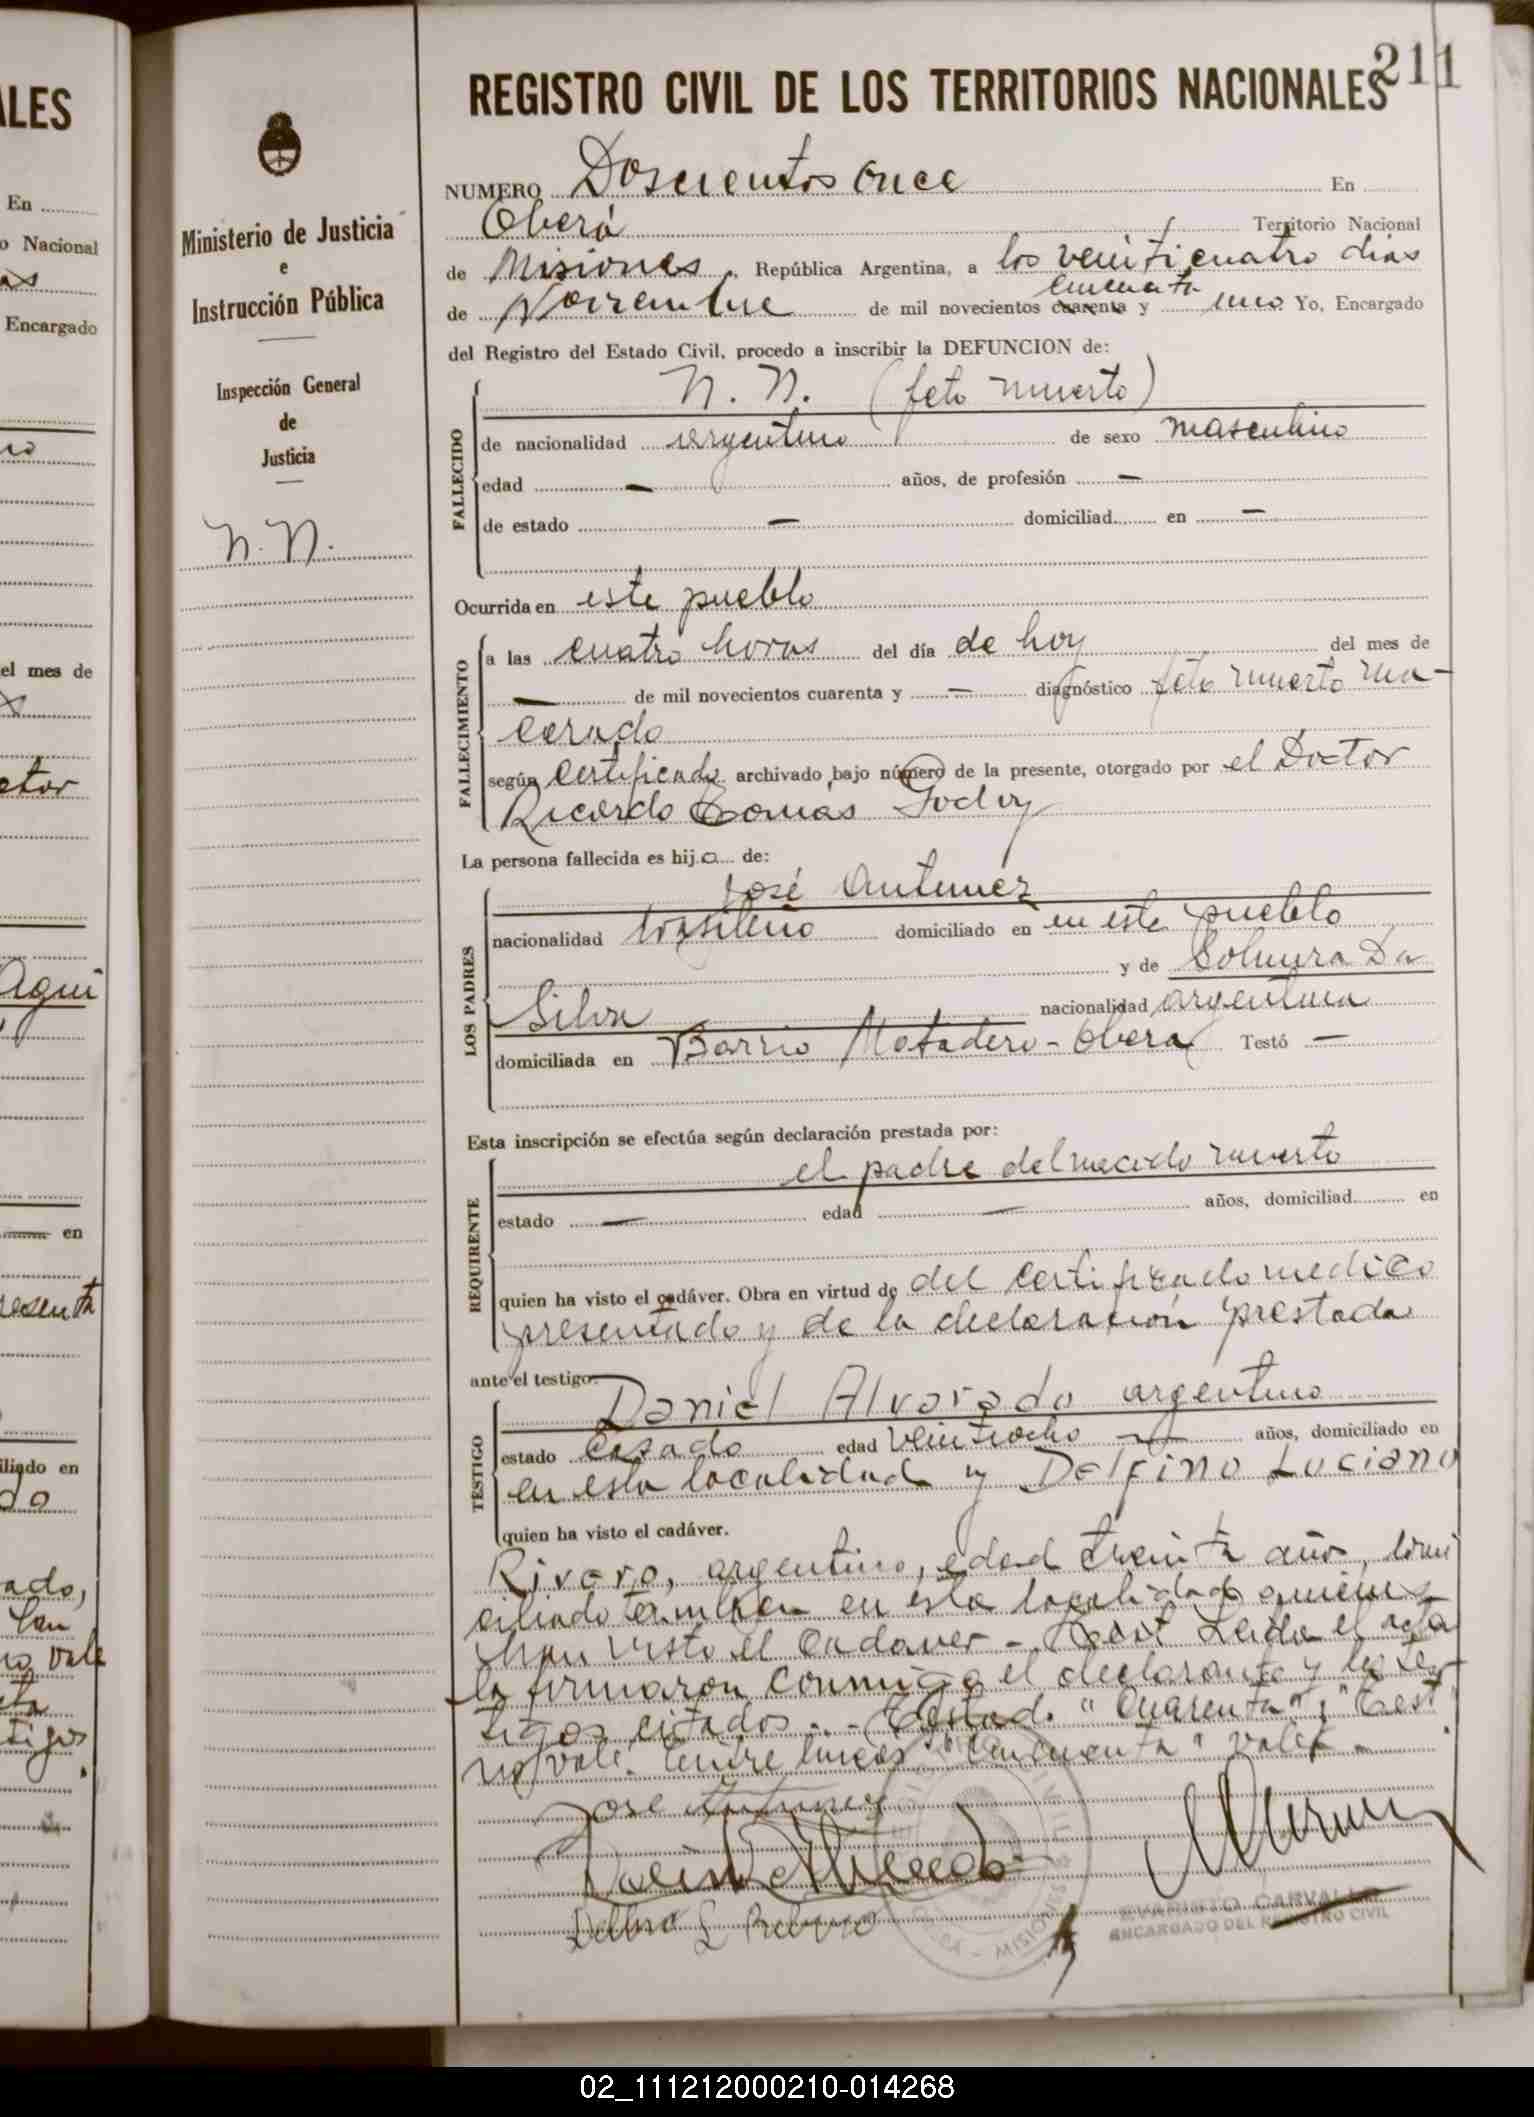 211
REGISTRO CIVIL DE LOS TERRITORIOS NACIONALES
Ministerio de Justicia
e
Instrucción Pública
Inspección General
de
Justicia
N. N.
NUMERO Doscientos once En
Oberá Territorio Nacional
de Misiones, República Argentina, a los veinticuatro dias
cincuenta
de Noviembre de mil novecientos cuarenta y uno Yo, Encargado
del Registro del Estado Civil, procedo a inscribir la DEFUNCION de:
FALLECIDO
N. N. (feto muerto)
de nacionalidad argentino de sexo masculino
edad — años, de profesión —
de estado — domiciliad en —
Ocurrida en este pueblo
FALLECIMIENTO
a las cuatro horas del día de hoy del mes de
— de mil novecientos cuarenta y — diagnóstico feto muerto ma-
cerado
según certificado archivado bajo número de la presente, otorgado por el Doctor
Ricardo Tomás Godoy
La persona fallecida es hijo de:
LOS PADRES
José Antunez
nacionalidad brasileño domiciliado en en este pueblo
y de Da
Silva nacionalidad argentina
domiciliada en Barrio Matadero - Oberá Testó —
Esta inscripción se efectúa según declaración prestada por:
REQUIRENTE
el padre del nacido muerto
estado — edad — años, domiciliad en
quien ha visto el cadáver. Obra en virtud de del certificado medico
presentado y de la declaración prestada
ante el testigo:
TESTIGO
Daniel Alvarado argentino
estado Casado edad veintiocho — años, domiciliado en
en esta localidad y Delfino Luciano
quien ha visto el cadáver.
Rivero, argentino, edad treinta años, domi
ciliado también en esta localidad quienes
han visto el cadaver - Leida el acta
la firmaron conmigo el declarante y los tes-
tigos citados. - Testad. "Cuarenta"; "Test"
no vale. Entre lineas: "Cincuenta" vale. -
José Antunez
EVARISTO CARVALLO
ENCARGADO DEL REGISTRO CIVIL
MISIONES
02_111212000210-014268